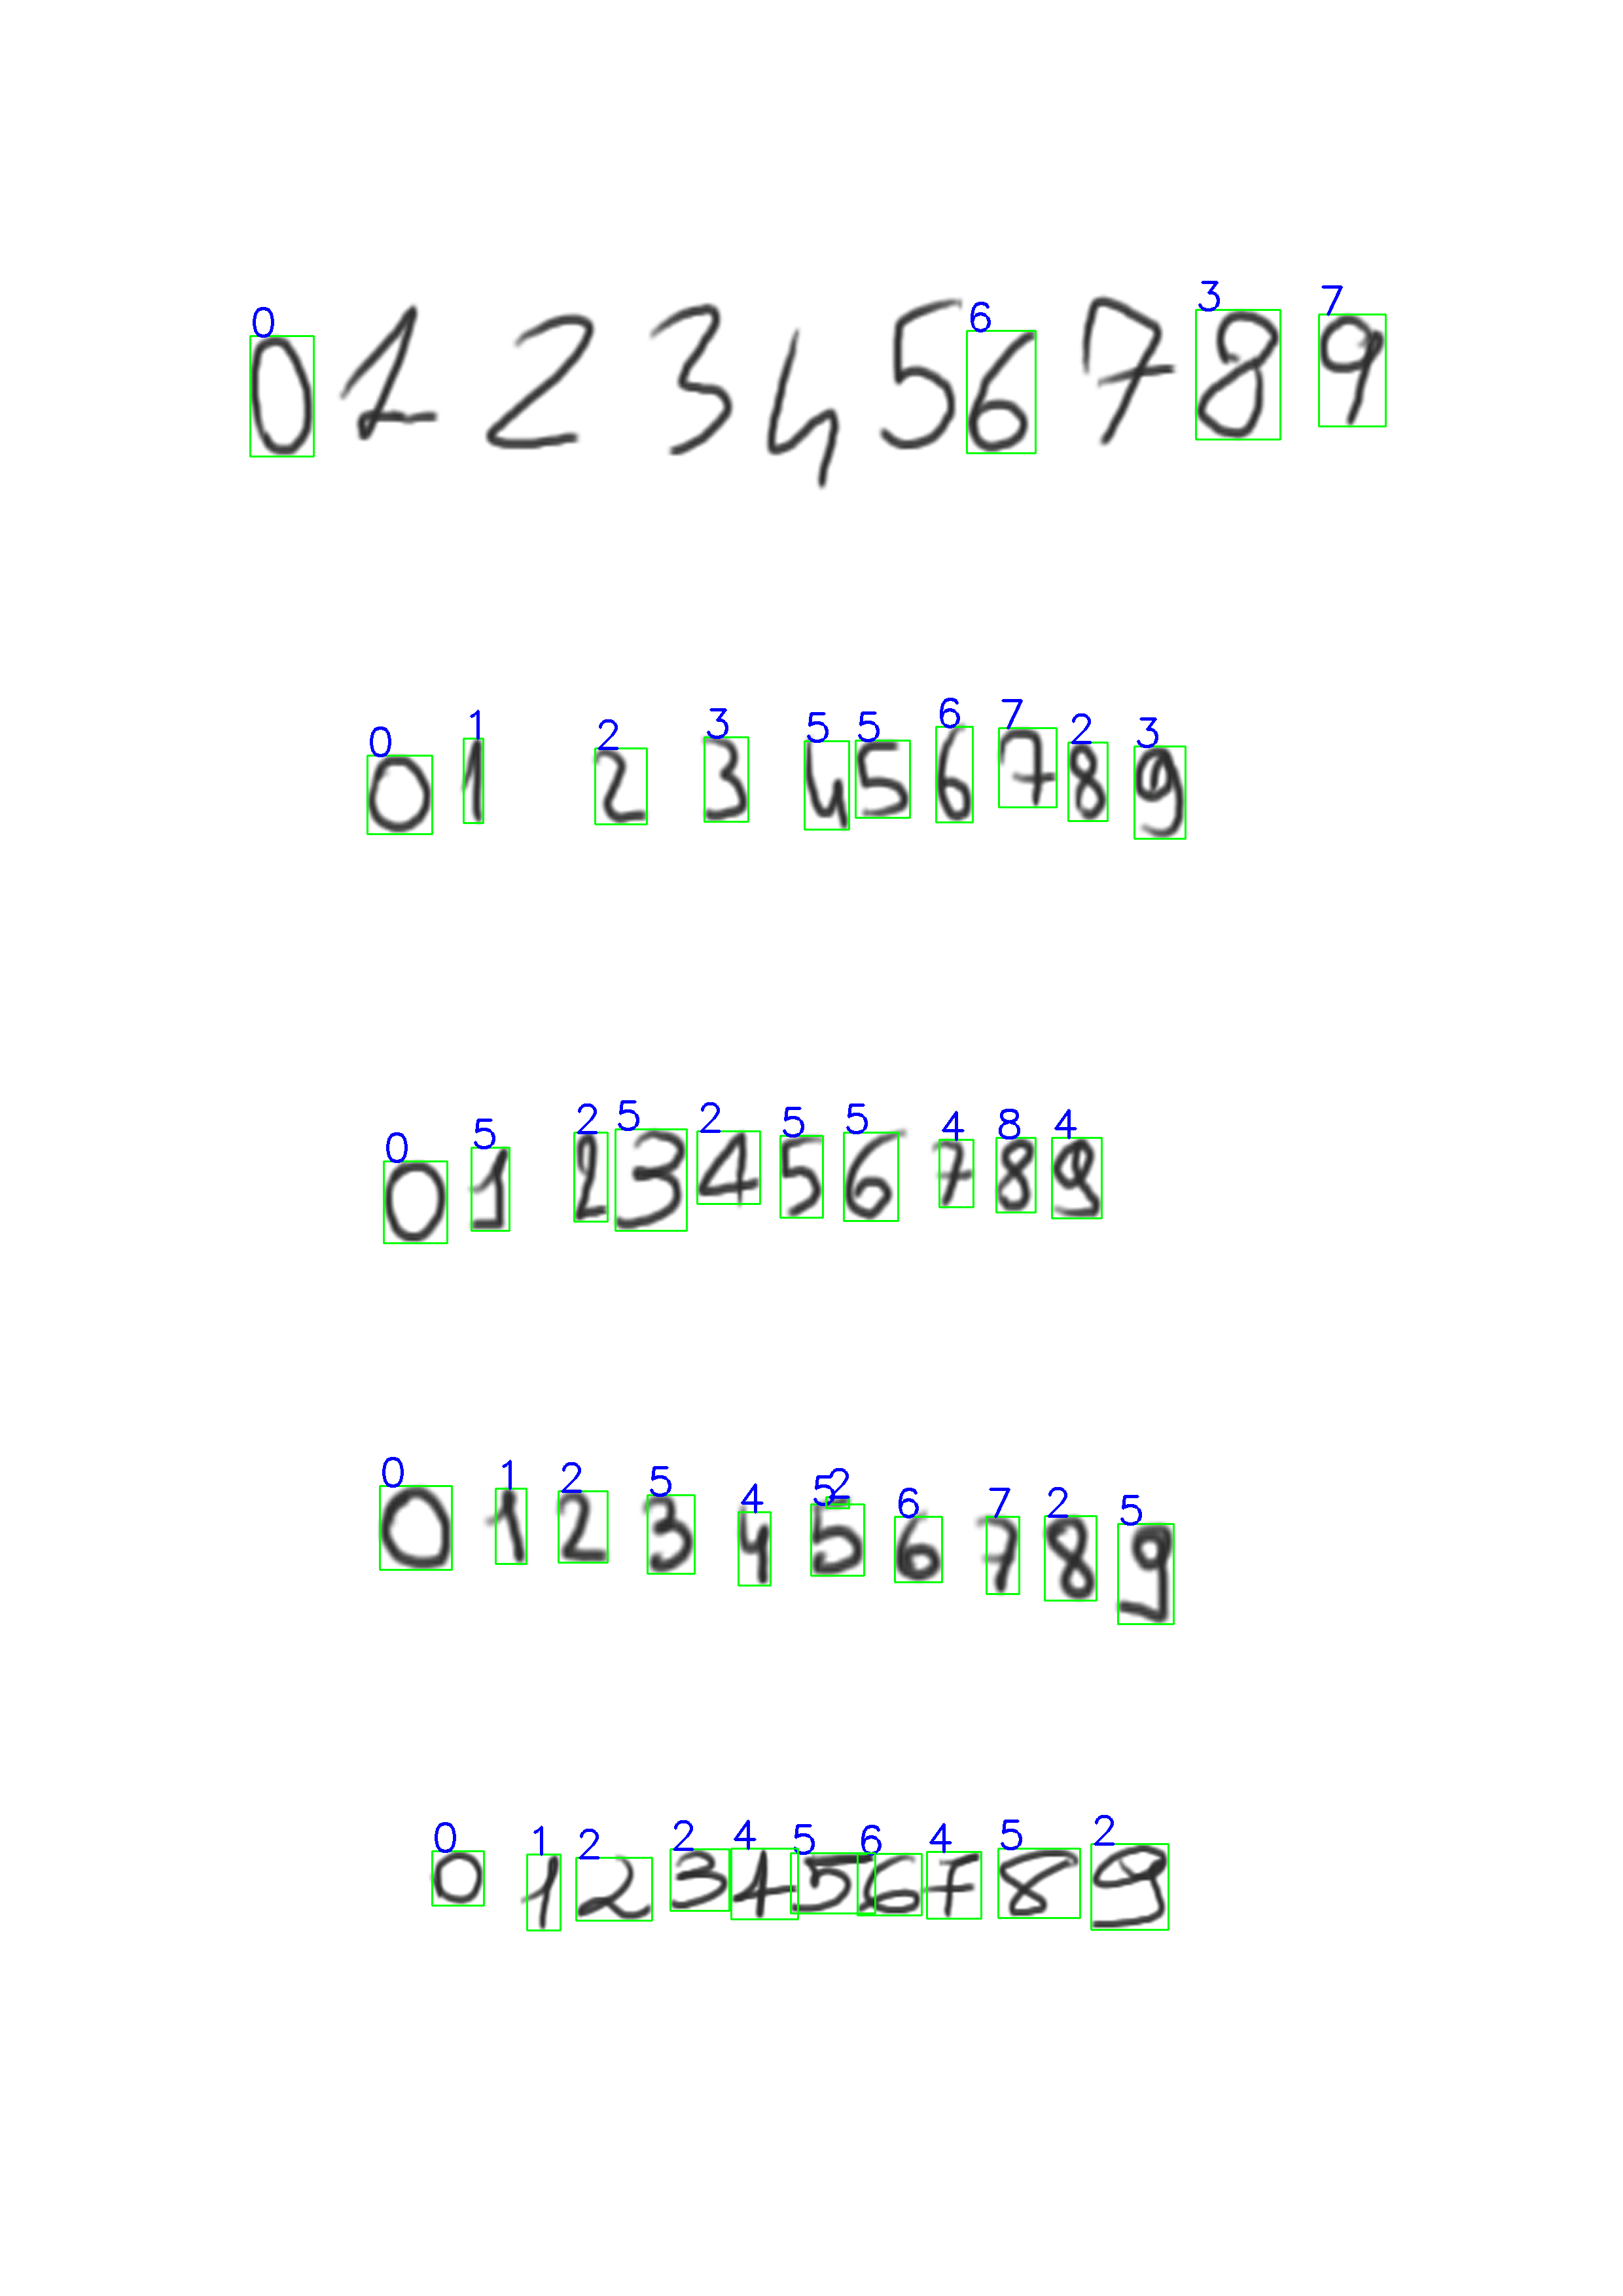 0 6 3 7
0 1 2 3 4 5 6 7 8 9
0 1 2 3 5 5 6 7 2 3
0 1 2 3 4 5 6 7 8 9
0 5 2 5 2 5 5 4 8 4
0 1 2 3 4 5 6 7 8 9
0 1 2 5 4 5 2 6 7 2 5
0 1 2 3 4 5 6 7 8 9
0 1 2 2 4 5 6 4 5 2
0 1 2 3 4 5 6 7 8 9